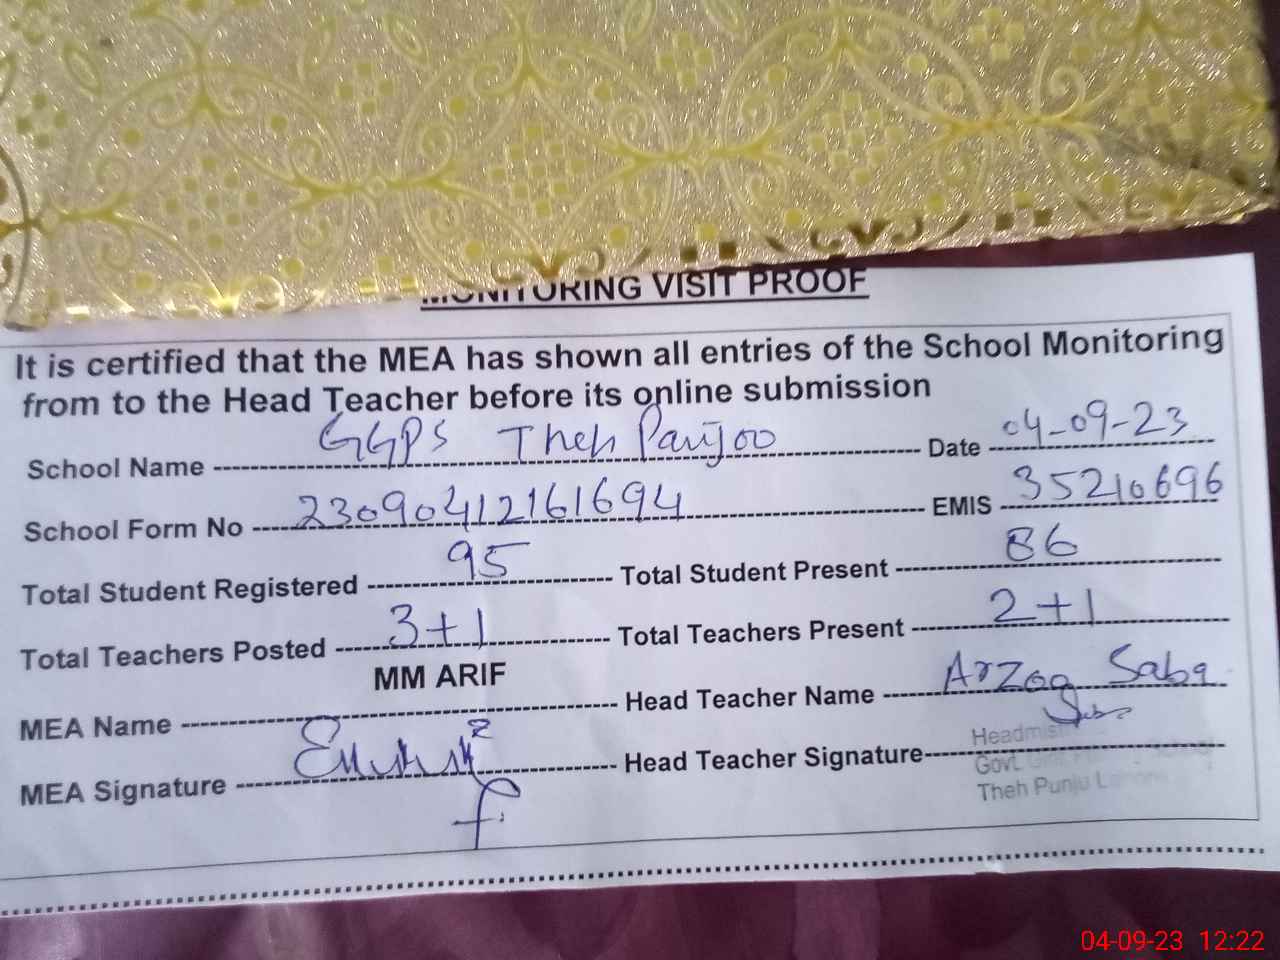 MONITORING VISIT PROOF
It is certified that the MEA has shown all entries of the School Monitoring
from to the Head Teacher before its online submission
School Name GGPS Theh Panjoo Date 04-09-23
School Form No 23090412161694 EMIS 35210696
Total Student Registered 95 Total Student Present 86
Total Teachers Posted 3+1 Total Teachers Present 2+1
MEA Name MM ARIF Head Teacher Name Arzoo Saba
MEA Signature Head Teacher Signature
Govt.
Theh Punju
04-09-23 12:22